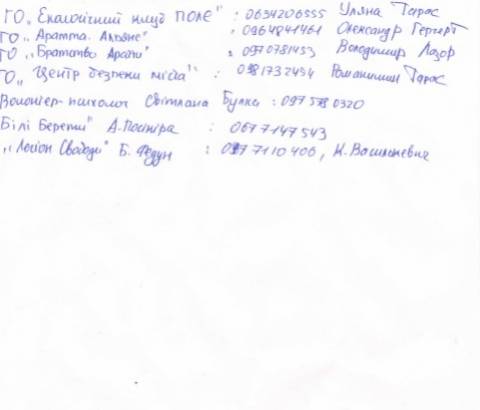 ГО „Екологічний клуб ПОЛЕ" : 0634206555 Уляна Тарас
ГО „Аратта. : 0964841461 Олександр Гергерт
ГО „Братство Аратти" : 0970781453 Володимир Лазор
ГО „Центр безпеки міста" : 0981732454 Романишин Тарас
Волонтер-психолог Світлана Булка : 097 578 0320
Білі Берети" А. : 067 7147 543
„Легіон Свободи" Б. Федун : 097 7110 406, К.